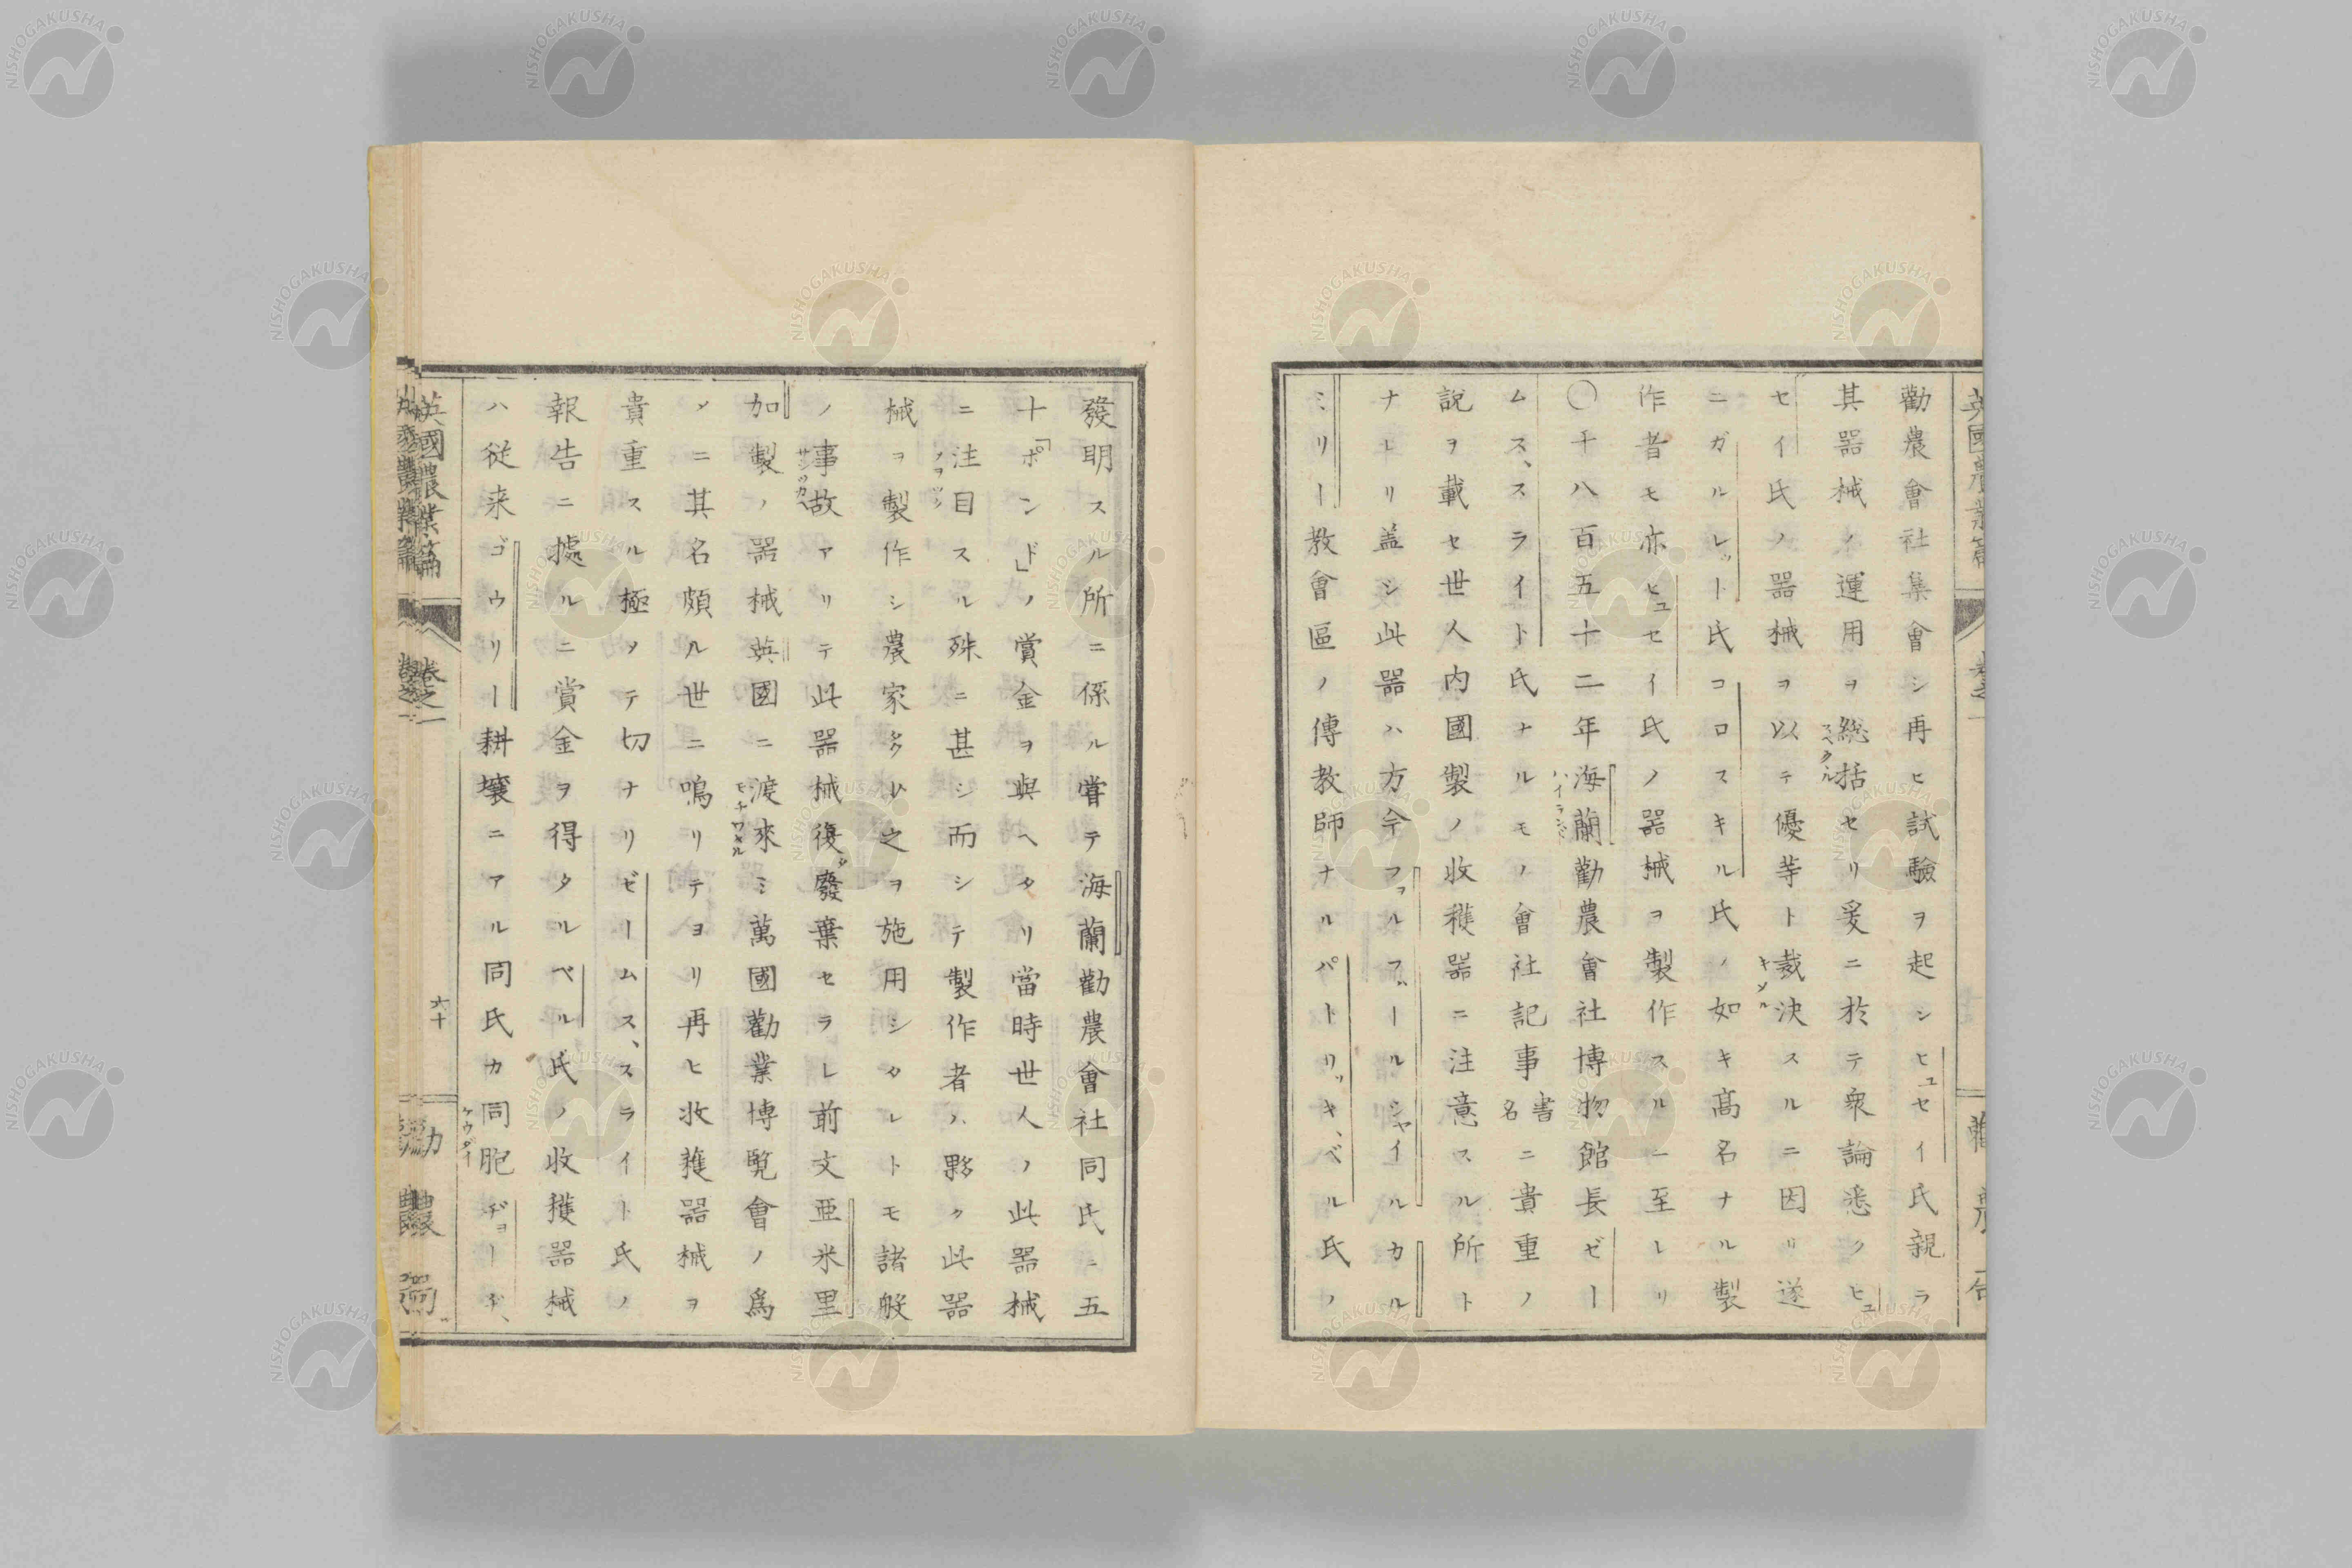 勸農會社集會シ再ヒ試驗ヲ起シヒュセイ氏親ラ
其器械ノ運用ヲ総括セリ爰ニ於テ衆論悉クヒュ
セイ氏ノ器械ヲ以テ優等ト裁決スルニ因リ遂
ニガルレット氏コロスキル氏ノ如キ髙名ナル製
作者モ亦ヒュセイ氏ノ器械ヲ製作スルニ至レリ
〇千八百五十二年海蘭勸農會社博物館長ゼー
ムス、スライト氏ナルモノ會社記事書名ニ貴重ノ
説ヲ載セ世人内國製ノ收穫器ニ注意スル所ト
ナレリ盖シ此器ハ方今フォルフヾールシャイルカル
ミリー教會區ノ傳教師ナルパトリッキ、ベル氏ノ
發明スル所ニ係ル嘗テ海蘭勸農會社同氏ニ五
十「ポンド」ノ賞金ヲ與ヘタリ當時世人ノ此器械
ニ注目スル殊ニ甚シ而シテ製作者ハ夥ク此器
械ヲ製作シ農家多ク之ヲ施用シタレトモ諸般
ノ事故アリテ此器械復タ廢棄セラレ前文亜米里
加製ノ器械英國ニ渡來ミ萬國勸業博覧會ノ爲
メニ其名頗ル世ニ鳴リテヨリ再ヒ收穫器械ヲ
貴重スル極メテ切ナリゼームス、スライト氏ノ
報告ニ據ルニ賞金ヲ得タルベル氏ノ收穫器械
ハ従来ゴウリー耕壌ニアル同氏カ同胞ヂョーヂ、
英國農業篇
卷之一
六十
勸農局